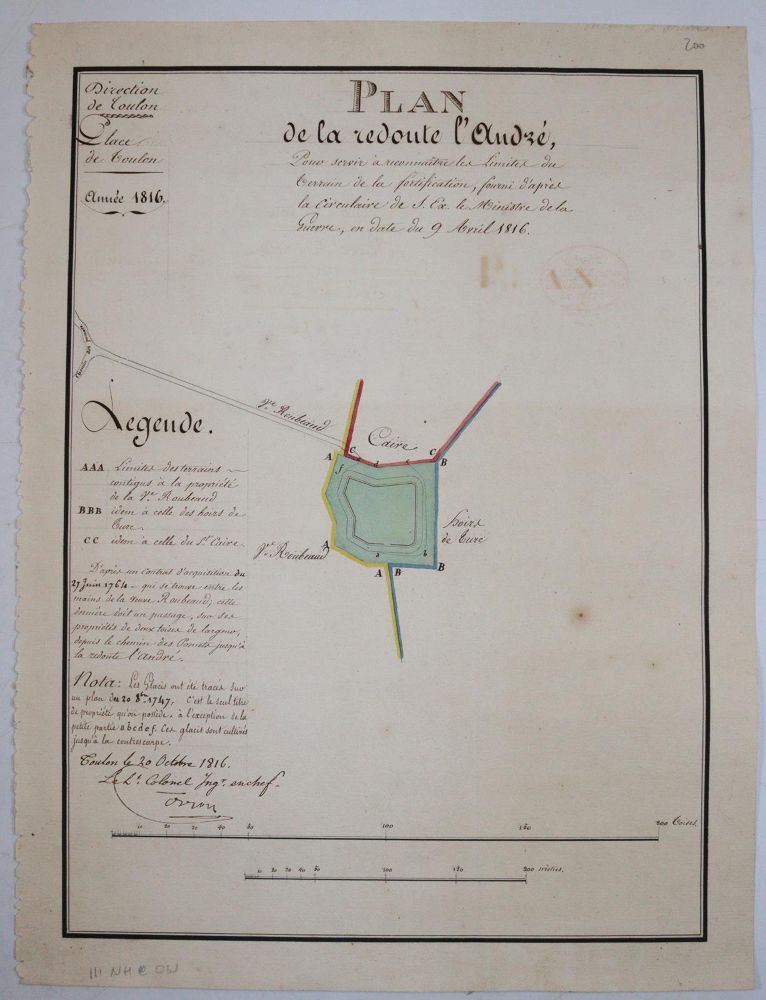 200
Direction
de Toulon
Place
de Toulon
Année 1816.
PLAN
de la redoute l'André,
Pour servir à reconnaître les Limites du
terrain de la fortification, fourni d'après
la Circulaire de S. Ex. le Ministre de la
Guerre, en date du 9 Avril 1816.
PLAN
Vve Roubeaud
Caire
A
C
d
e
C
B
f
hoirs
de Turc
Vve Roubeaud
A
a
b
A
B
B
Legende.
AAA Limites des terrains
contigus à la propriété
de la Vve Roubeaud
BBB idem à celle des hoirs de
Turc.
CC idem à celle du Sr. Caire.
D'après un contrat d'acquisition du
27 Juin 1764 - qui se trouve entre les
mains de la veuve Roubeaud, cette
dernière doit un passage, sur ses
propriétés de deux toises de largeur,
depuis le chemin des Pomets jusqu'à
la redoute l'André.
Nota: Les Glacis ont été tracés sur
un plan du 20 8bre 1747, C'est le seul titre
de propriété qu'on possède. à l'exception de la
petite partie abcdef. Ces glacis sont cultivés
jusqu'à la contrescarpe.
Toulon le 20 Octobre 1816.
Le Lt. Colonel Ingr. en chef.
10 20 30 40 50 100 150 200 Toises.
10 20 30 40 50 100 150 200 mètres.